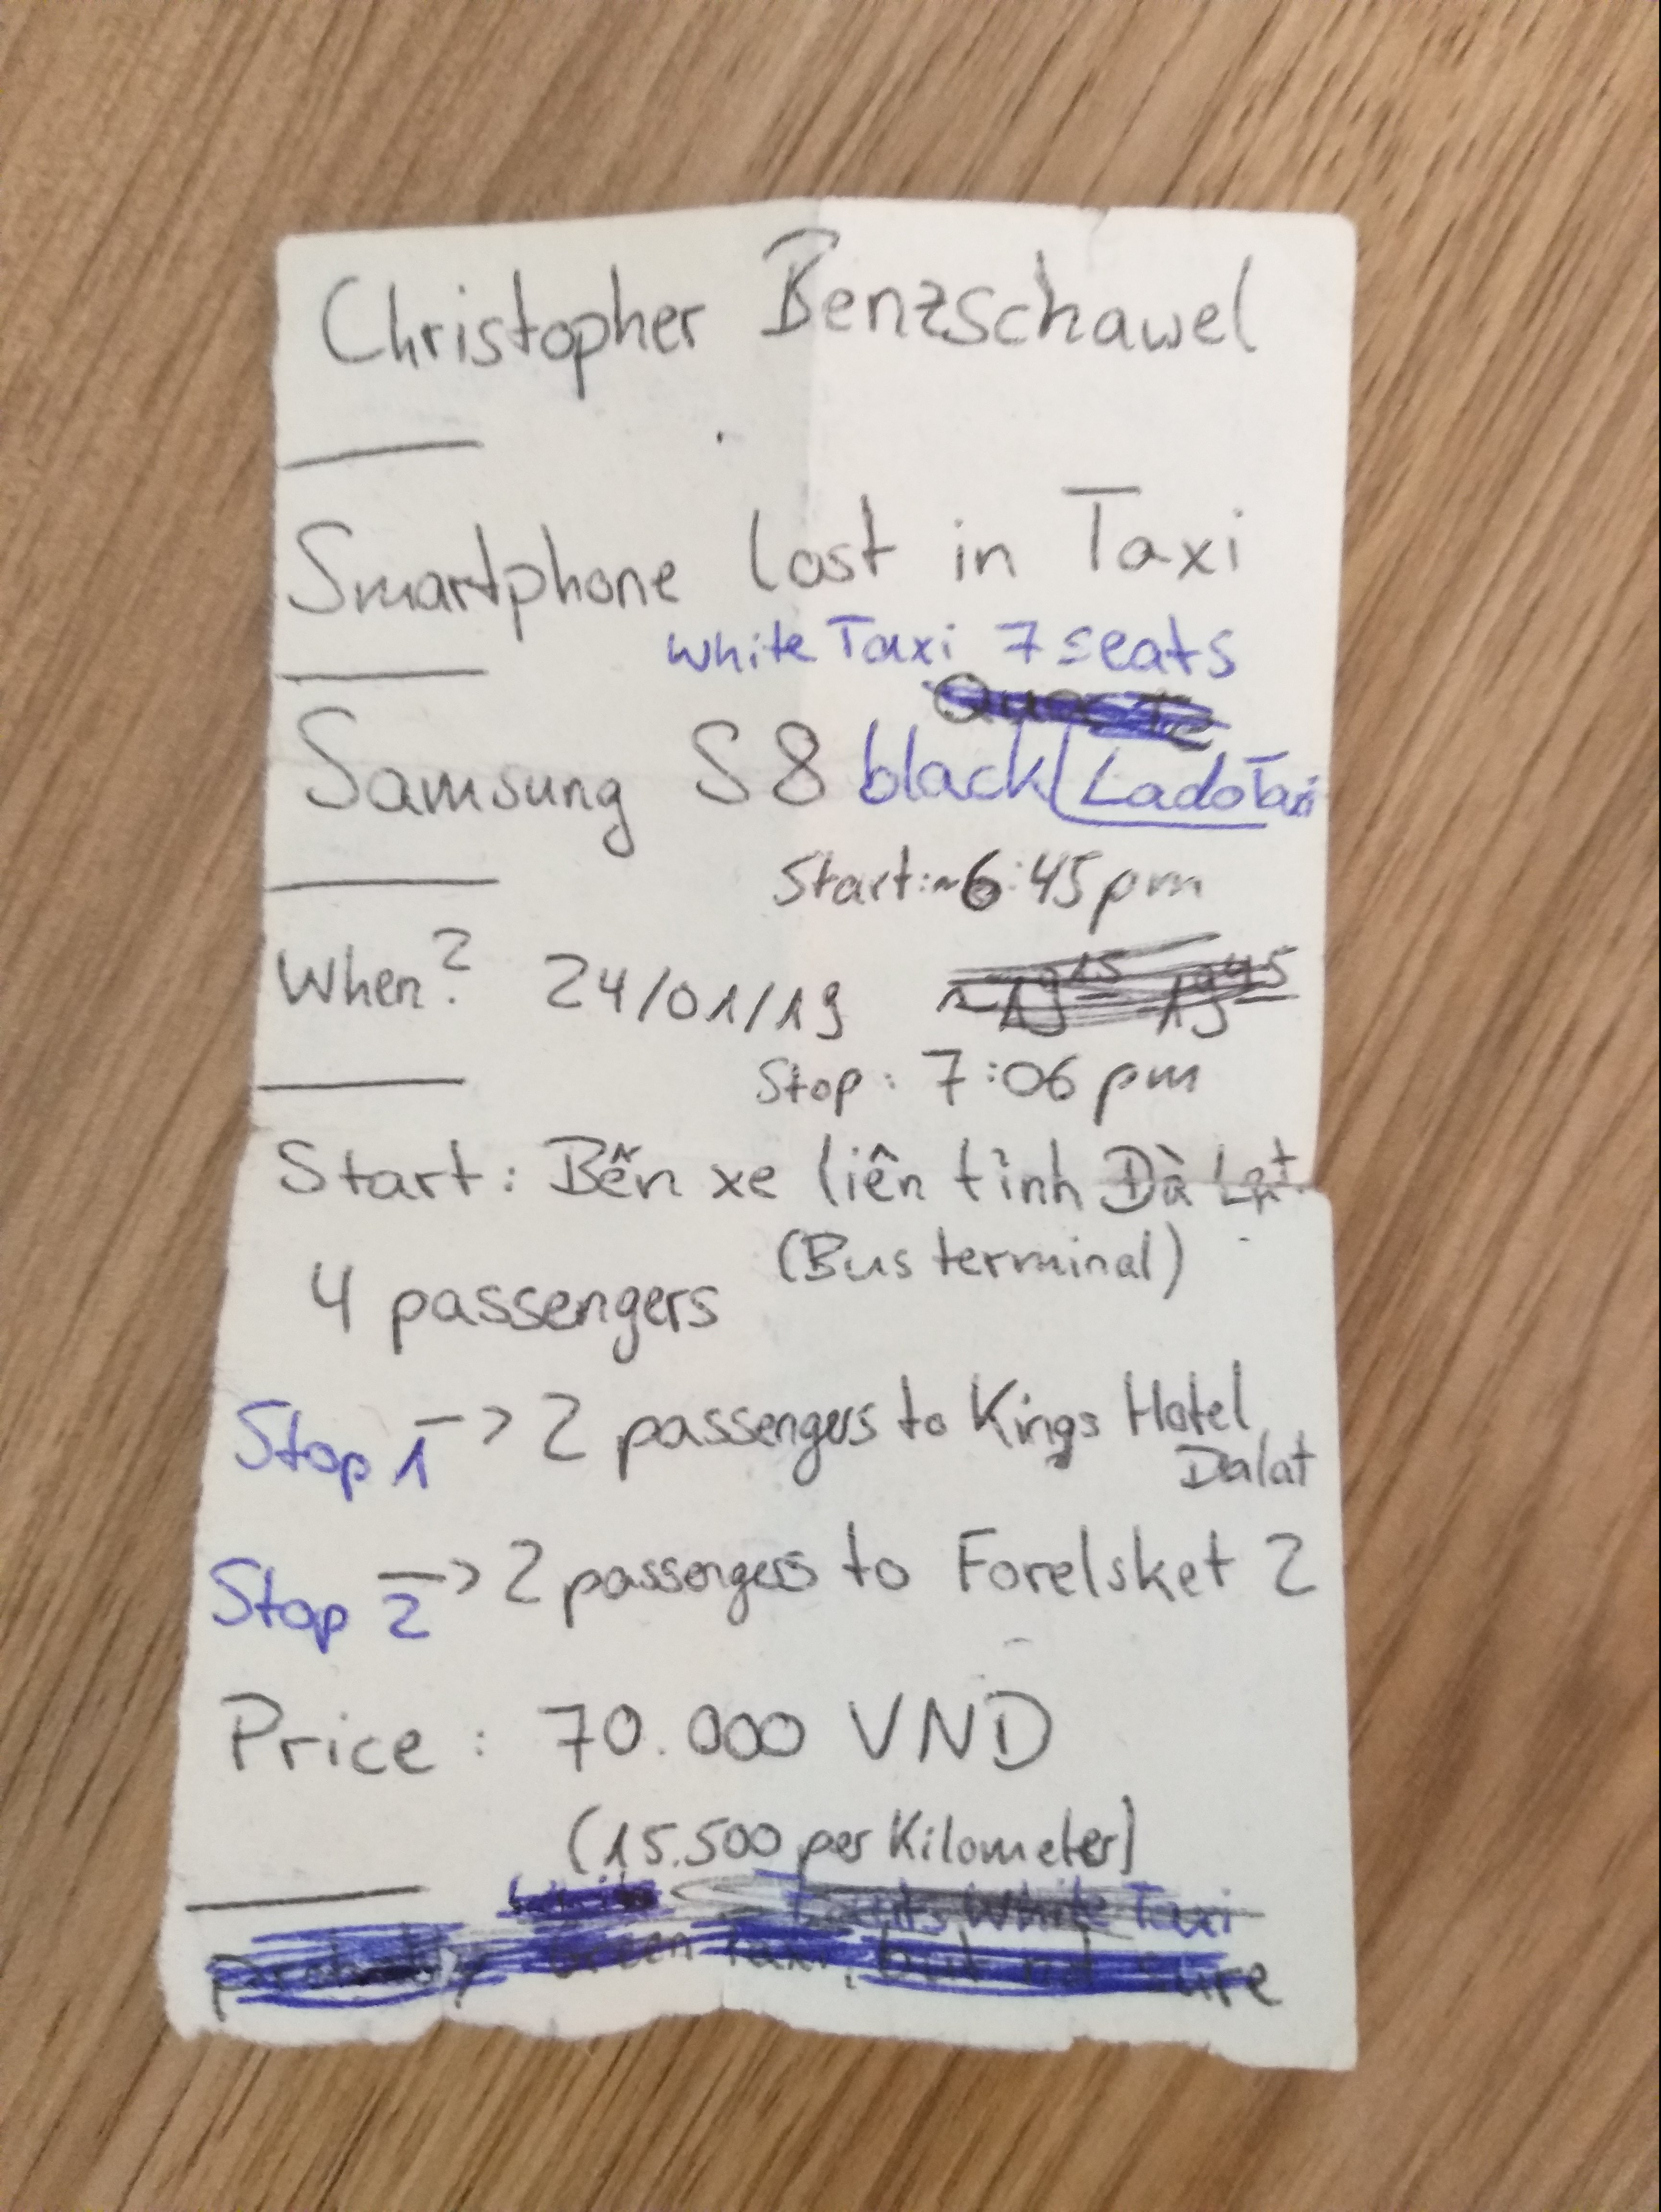 Christopher Benzschawel
Smartphone lost in Taxi
white Taxi 7 seats
Samsung S8 black LadoTaxi
Start: ~6:45pm
When? 24/01/19
~19¹⁵ - 19⁴⁵
Stop: 7:06 pm
Start: Bến xe liên tỉnh Đà Lạt
(Bus terminal)
4 passengers
Stop 1 -> 2 passengers to Kings Hotel
Dalat
Stop 2 -> 2 passengers to Forelsket 2
Price: 70.000 VND
(15.500 per Kilometer)
White Taxi
probably Green Taxi, but not sure